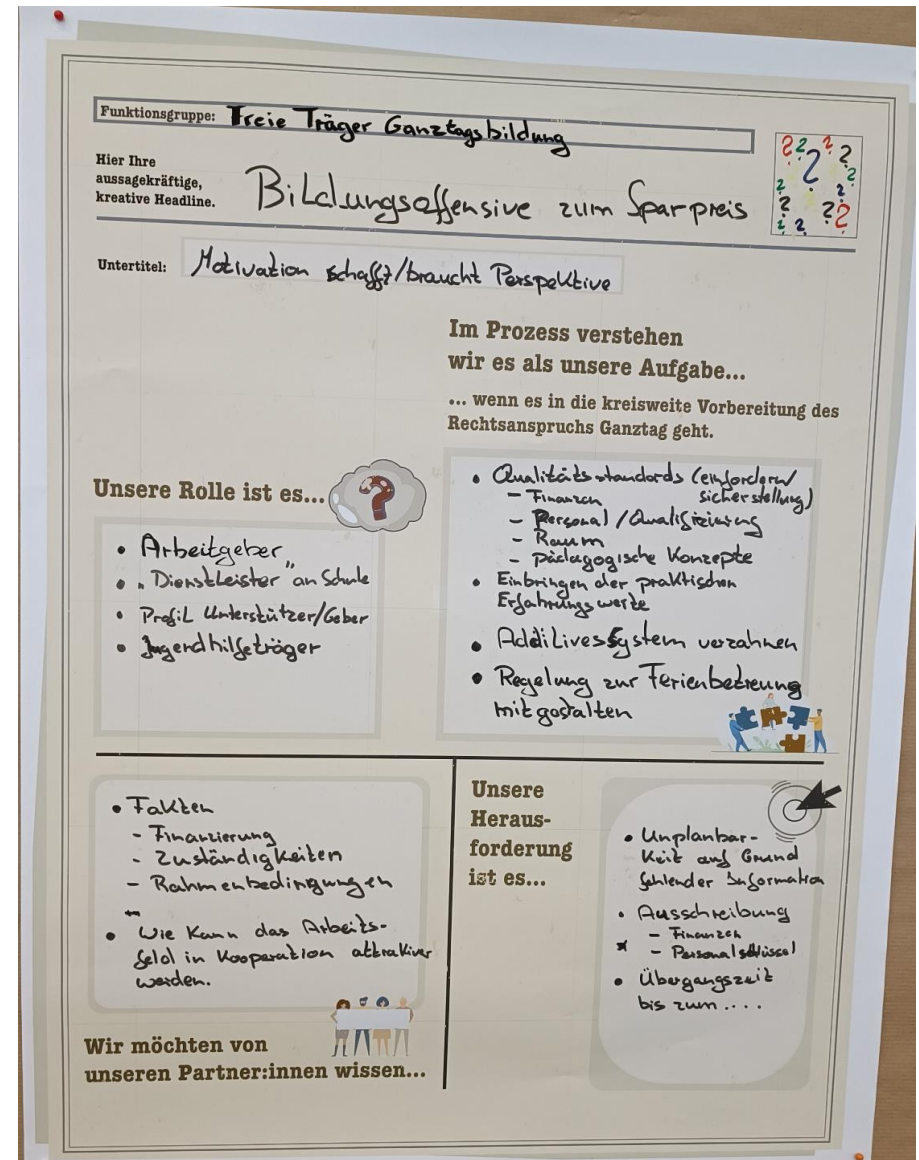 Funktionsgruppe: Freie Träger Ganztagsbildung
Hier Ihre
aussagekräftige,
kreative Headline.
Bildungsoffensive zum Sparpreis
Untertitel: Motivation schafft/braucht Perspektive
Im Prozess verstehen
wir es als unsere Aufgabe...
... wenn es in die kreisweite Vorbereitung des
Rechtsanspruchs Ganztag geht.
Unsere Rolle ist es...
• Arbeitgeber
• „Dienstleister" an Schule
• Profil Unterstützer/Geber
• Jugendhilfeträger
• Qualitätsstandards (einfordern/
sicherstellung)
- Finanzen
- Personal/Qualifizierung
- Raum
- pädagogische Konzepte
• Einbringen der praktischen
Erfahrungswerte
• Additives System verzahnen
• Regelung zur Ferienbetreung
mitgestalten
• Fakten
- Finanzierung
- Zuständigkeiten
- Rahmenbedingungen
• Wie kann das Arbeits-
feld in Kooperation attrakiver
werden.
Wir möchten von
unseren Partner:innen wissen...
Unsere
Heraus-
forderung
ist es...
• Unplanbar-
keit auf Grund
fehlender Information
• Ausschreibung
- Finanzen
* - Personalschlüssel
• Übergangszeit
bis zum ....